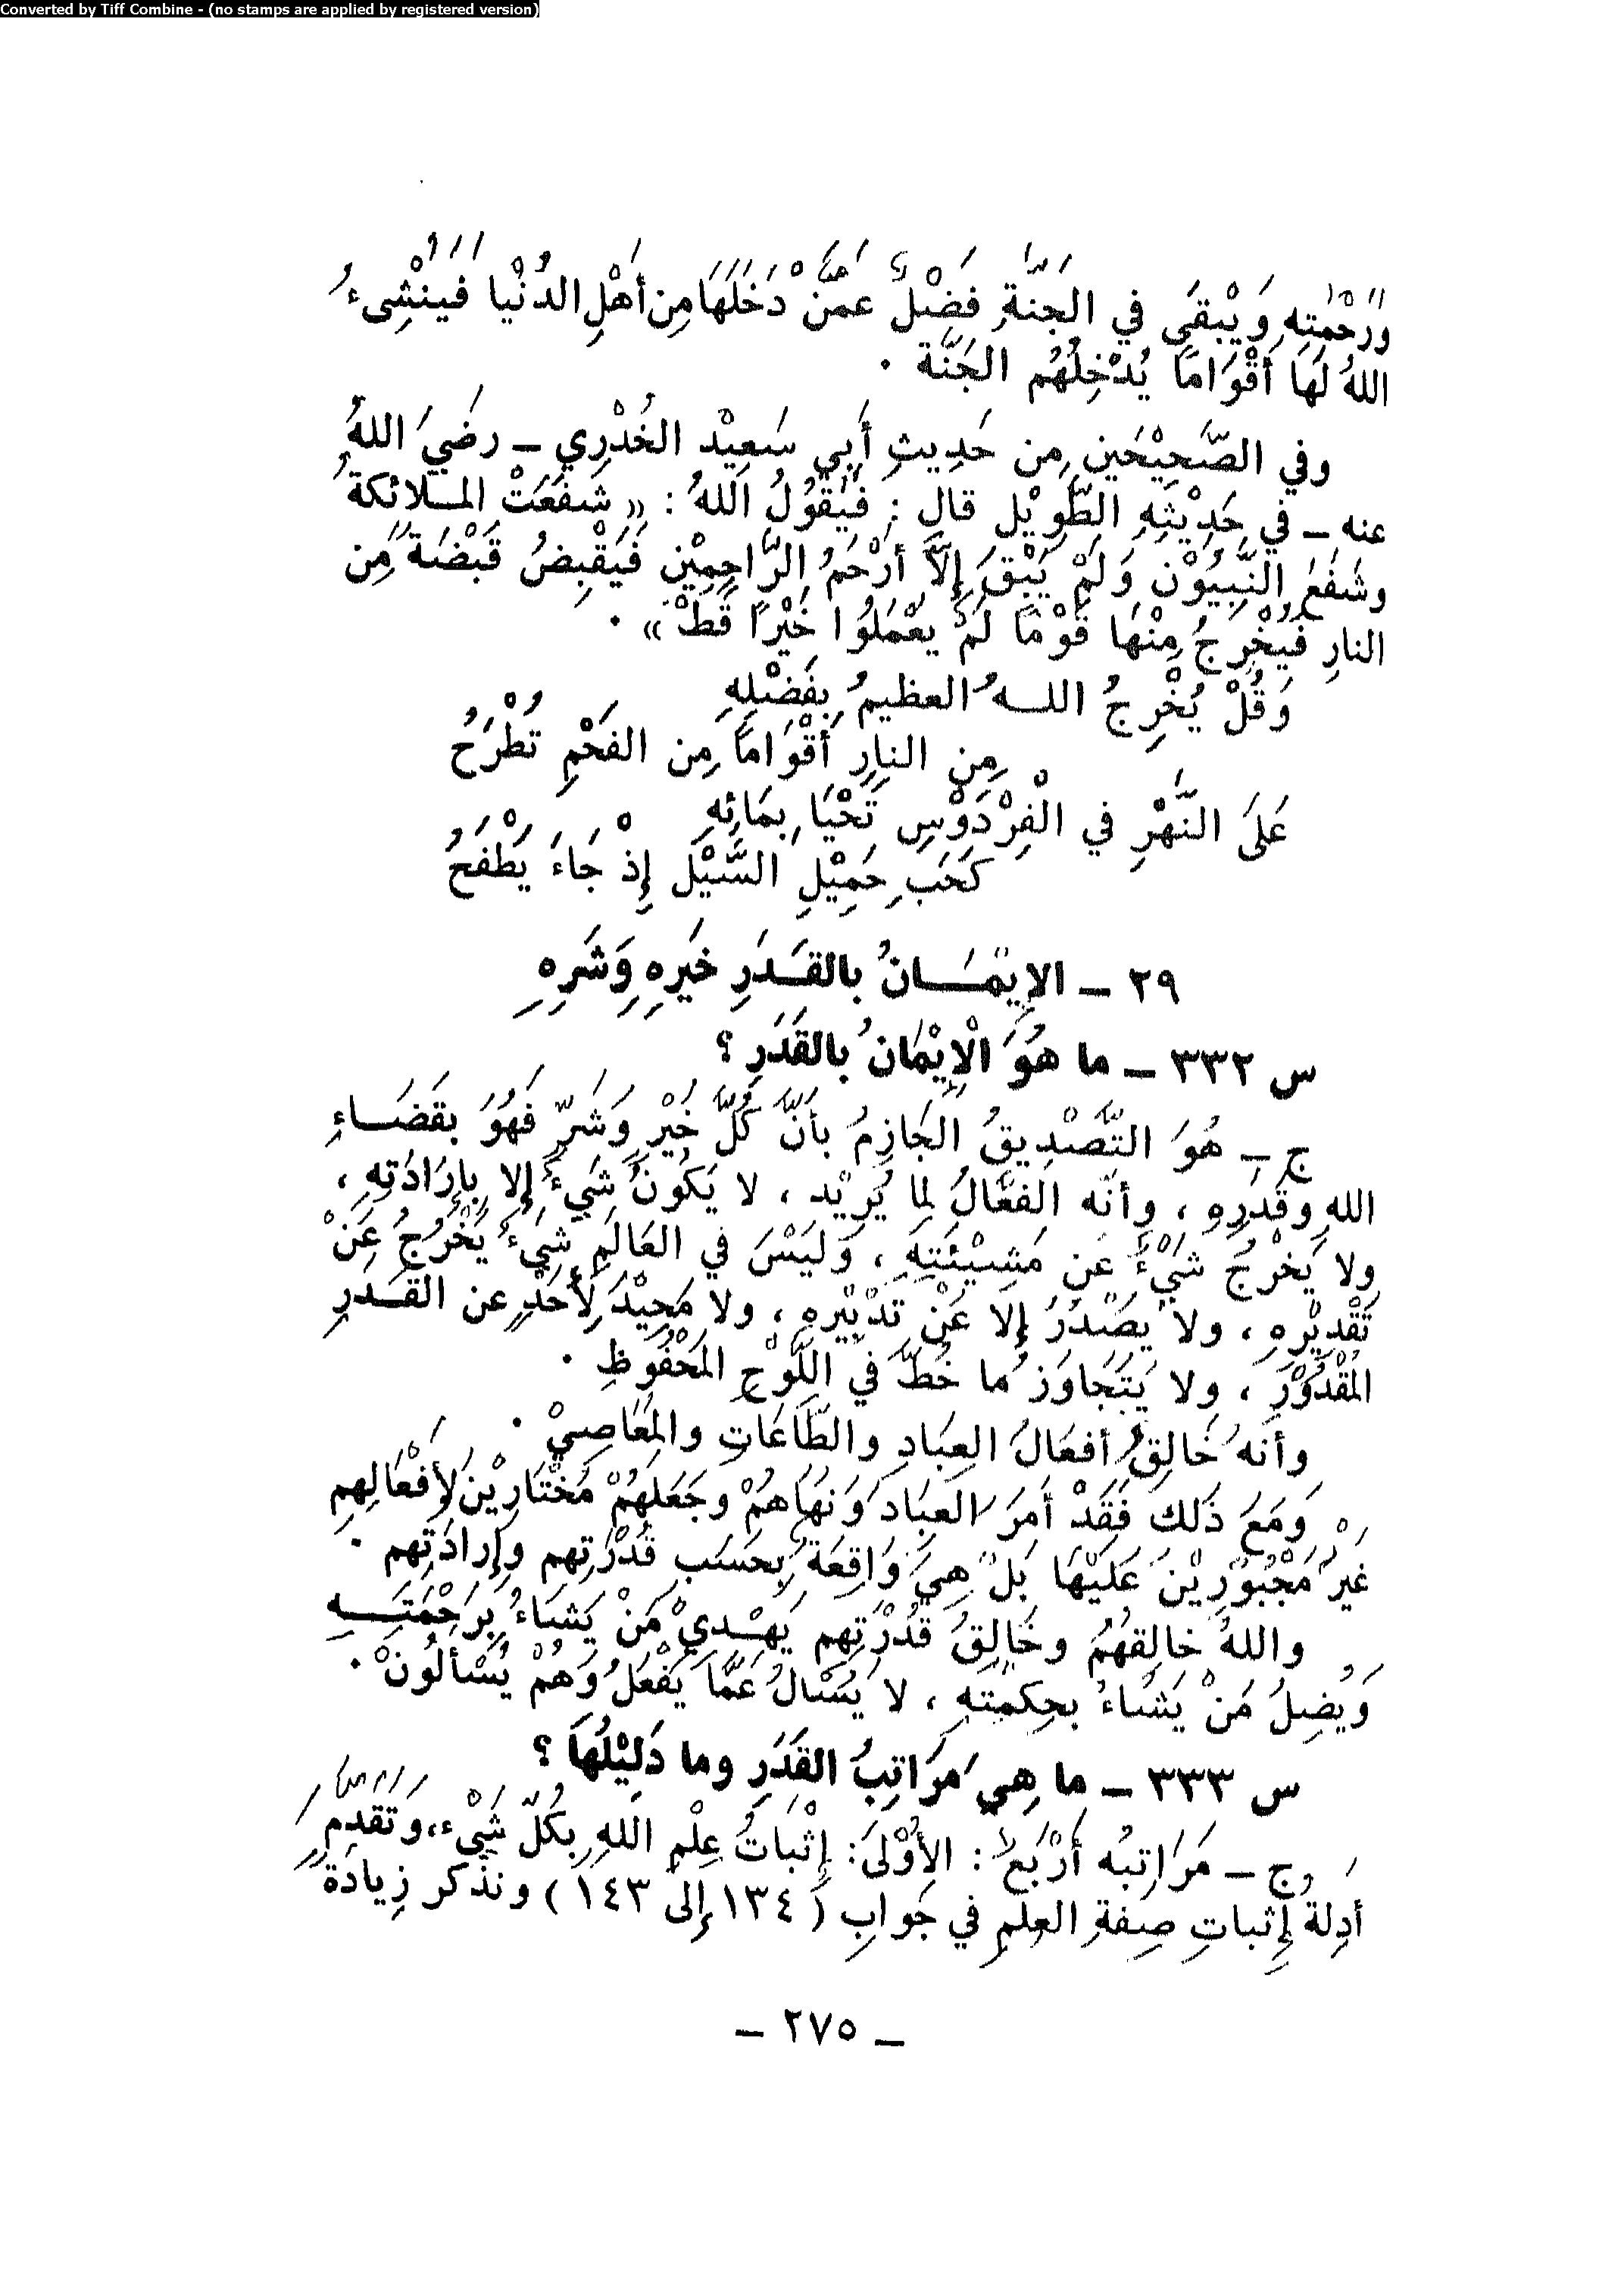 Converted by Tiff Combine - (no stamps are applied by registered version)
وَرَحْمَتِهِ وَيَبْقَى في الجَنَّةِ فَضْلٌ عَمَّنْ دَخَلَهَا مِن أَهْلِ الدُنْيا فَيُنْشِىءُ
اللهُ لَهَا أَقْوَامًا يُدْخِلُهُم الجَنَّة .
وفي الصَّحِيْحَينِ مِن حَدِيثِ أَبِي سَعِيْد الخُدْرِي – رضيَ اللهُ
عنه – في حَدِيْثِهِ الطَّوِيْلِ قالَ : فَيَقُوْلُ اللهُ : « شَفَعَتْ المـلائكةُ
وشَفَعَ النَّبِيُوْن وَلَمْ يَبْقَ إِلاَّ أَرْحَمُ الرَّاحِمِيْن فَيَقْبِضُ قَبْضَةً مِن
النارِ فَيُخْرِجُ مِنْهَا قَوْمًا لَمْ يَعْمَلُوا خَيْرًا قَطْ » .
وَقُلْ يُخْرِجُ اللـهُ العظيمُ بِفَضْلِهِ
مِن النارِ أَقْوَامًا مِن الفَحْمِ تُطْرَحُ
عَلَى النَّهْرِ في الْفِرْدَوْسِ تَحْيَا بِمَائِهِ
كَحَبِ حَمِيْلِ السَّيْلَ إِذْ جَاءَ يَطْفَحُ
٢٩ – الإِيْمَـــانُ بالقَـدَرِ خَيْرِهِ وَشَرِهِ
س ٣٣٢ – ما هُوَ الْإِيْمَانُ بالقَدَرِ ؟
ج – هُوَ التَّصْدِيقُ الجَازِمُ بأَنَّ كُلَّ خَيْرٍ وَشَرٍّ فَهُوَ بقَضَــاءِ
اللهِ وقَدَرِهِ ، وأنَّه الفَعَّالُ لِمَا يُرِيْد ، لا يَكُونُ شَيءٌ إِلا بإِرَادَتِهِ ،
ولا يَخْرِجُ شَيْءٌ عَن مَشِيْئَتِهِ ، وَلَيْسَ في العَالَمِ شَيءٌ يَخْرُجُ عَنْ
تَقْدِيْرِهِ ، ولا يَصْدُرُ إِلا عَنْ تَدْبِيْرِهِ ، ولا مَحِيْدَ لِأَحَدٍ عن القَـدَرِ
المَقْدُوْرَ ، ولا يَتَجَاوَزُ ما خُطَّ في اللَّوْحِ المَحْفُوظِ .
وأنهُ خَالِقُ أفعَالَ العِبَادِ والطَّاعَاتِ والمَعَاصِيْ .
وَمَعَ ذَلك فَقَدْ أَمَرَ العِبَادَ وَنَهَاهُمْ وجَعَلَهُمْ مُخْتَارِيْن لأَفْعَالِهِم
غَيْرَ مَجْبُوْرِيْنَ عَلَيْهَا بَلْ هِيَ وَاقِعَةٌ بِحَسَبِ قُدْرَتِهِم وإِرادَتِهِم .
واللهُ خالِقهُمُ وخَالِقُ قُدْرَتِهِم يَهْـدِيْ مَنْ يَشَاءُ بِرَحْمَتـــهِ
وَيُضِلُ مَنْ يَشَاءُ بحِكمَتِهِ ، لا يَسْأَلُ عَمَّا يَفْعَلُ وَهُمْ يُسْأَلُونْ .
س ٣٣٣ – ما هِي مَرَاتِبُ القَدَرِ وما دَلِيْلُهَا ؟
ج – مَرَاتِبُه أَرْبَع : الأُوْلَى : إِثْبَاتُ عِلْمِ اللهِ بِكُلِّ شَيْءٍ ، وَتَقَدَّم
أدِلةٌ لِإِثباتِ صِفةِ العِلمِ في جَوابِ ( ١٣٤ إِلى ١٤٣ ) ونَذْكر زِيادَةً
– ٢٧٥ –